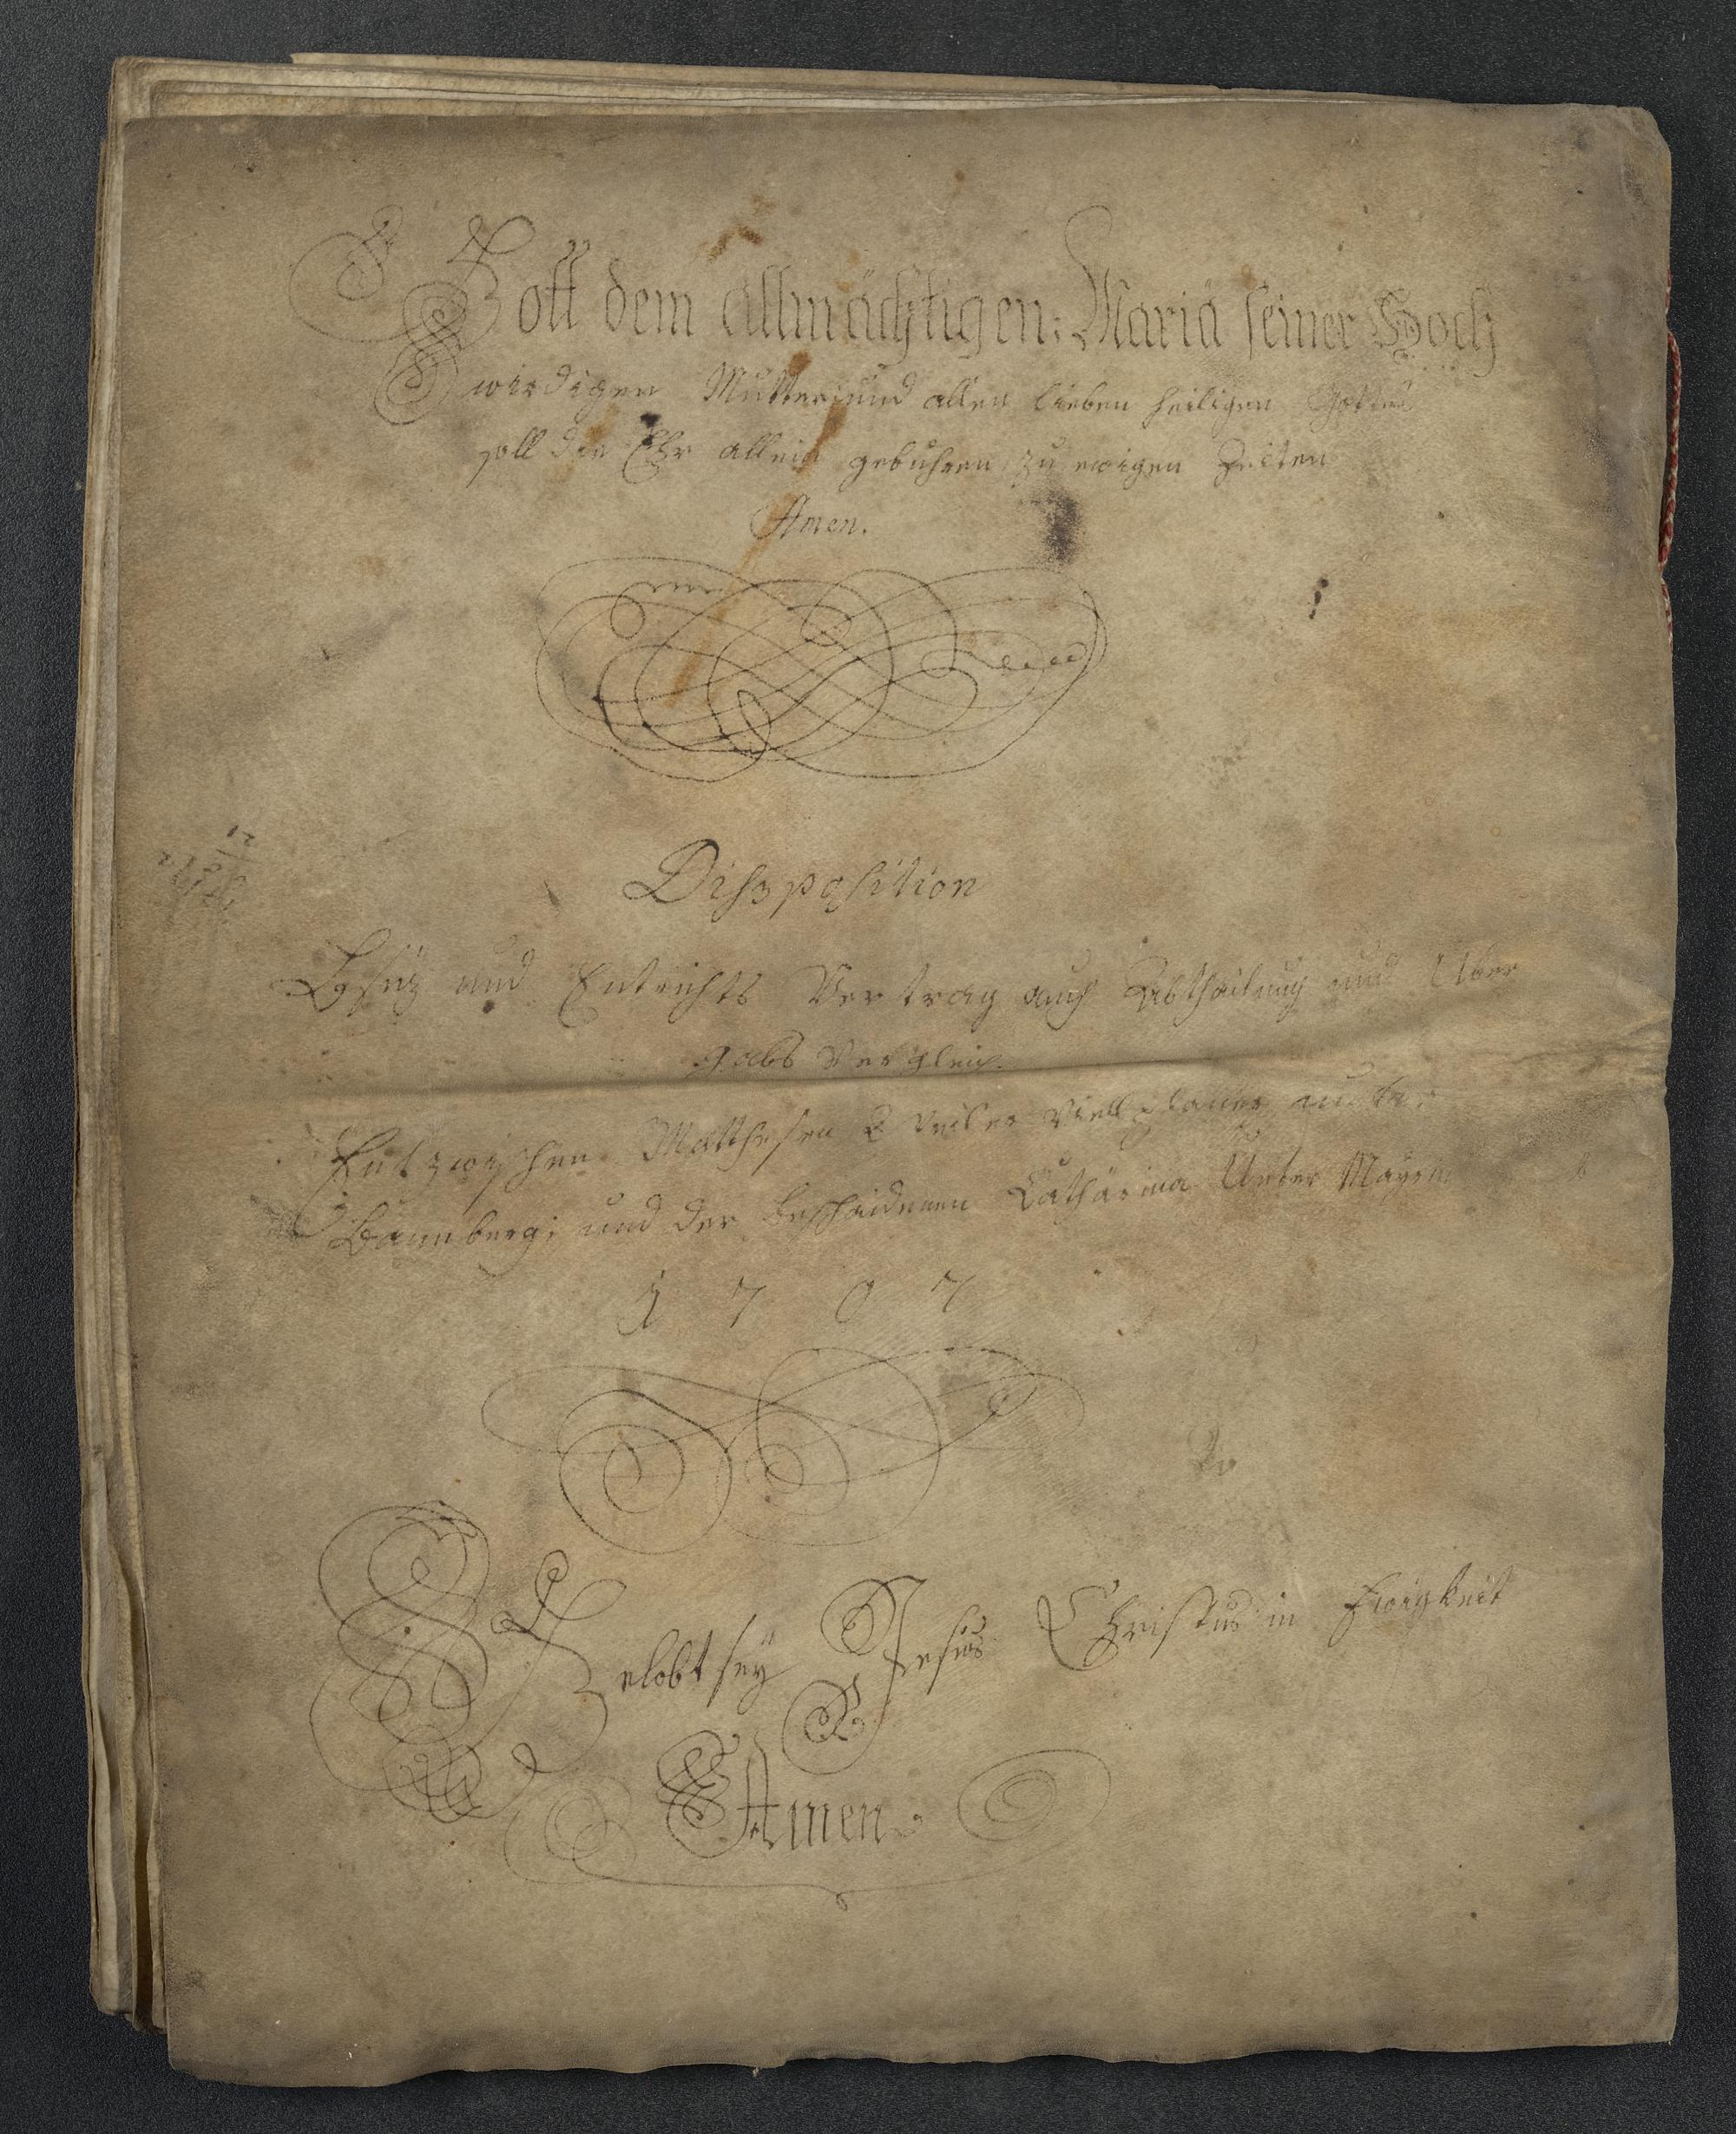 Gott dem Allmächtigen: Maria seiner Hoch
wirdigen Mutter: und allen lieben heiligen Gottes
soll die Ehr allein gebühren zu ewigen Zeiten
Amen.
Dißposition
und Entrichts Vertrag auch Abthailung und Uber
gabs Vergleich.
Entzwischen Matthesen
Baumberg; und der beschaidenen Catharina Unter Mayrin
1707
Gelobt sey Jesus Christus in Ewigkeit
Amen.